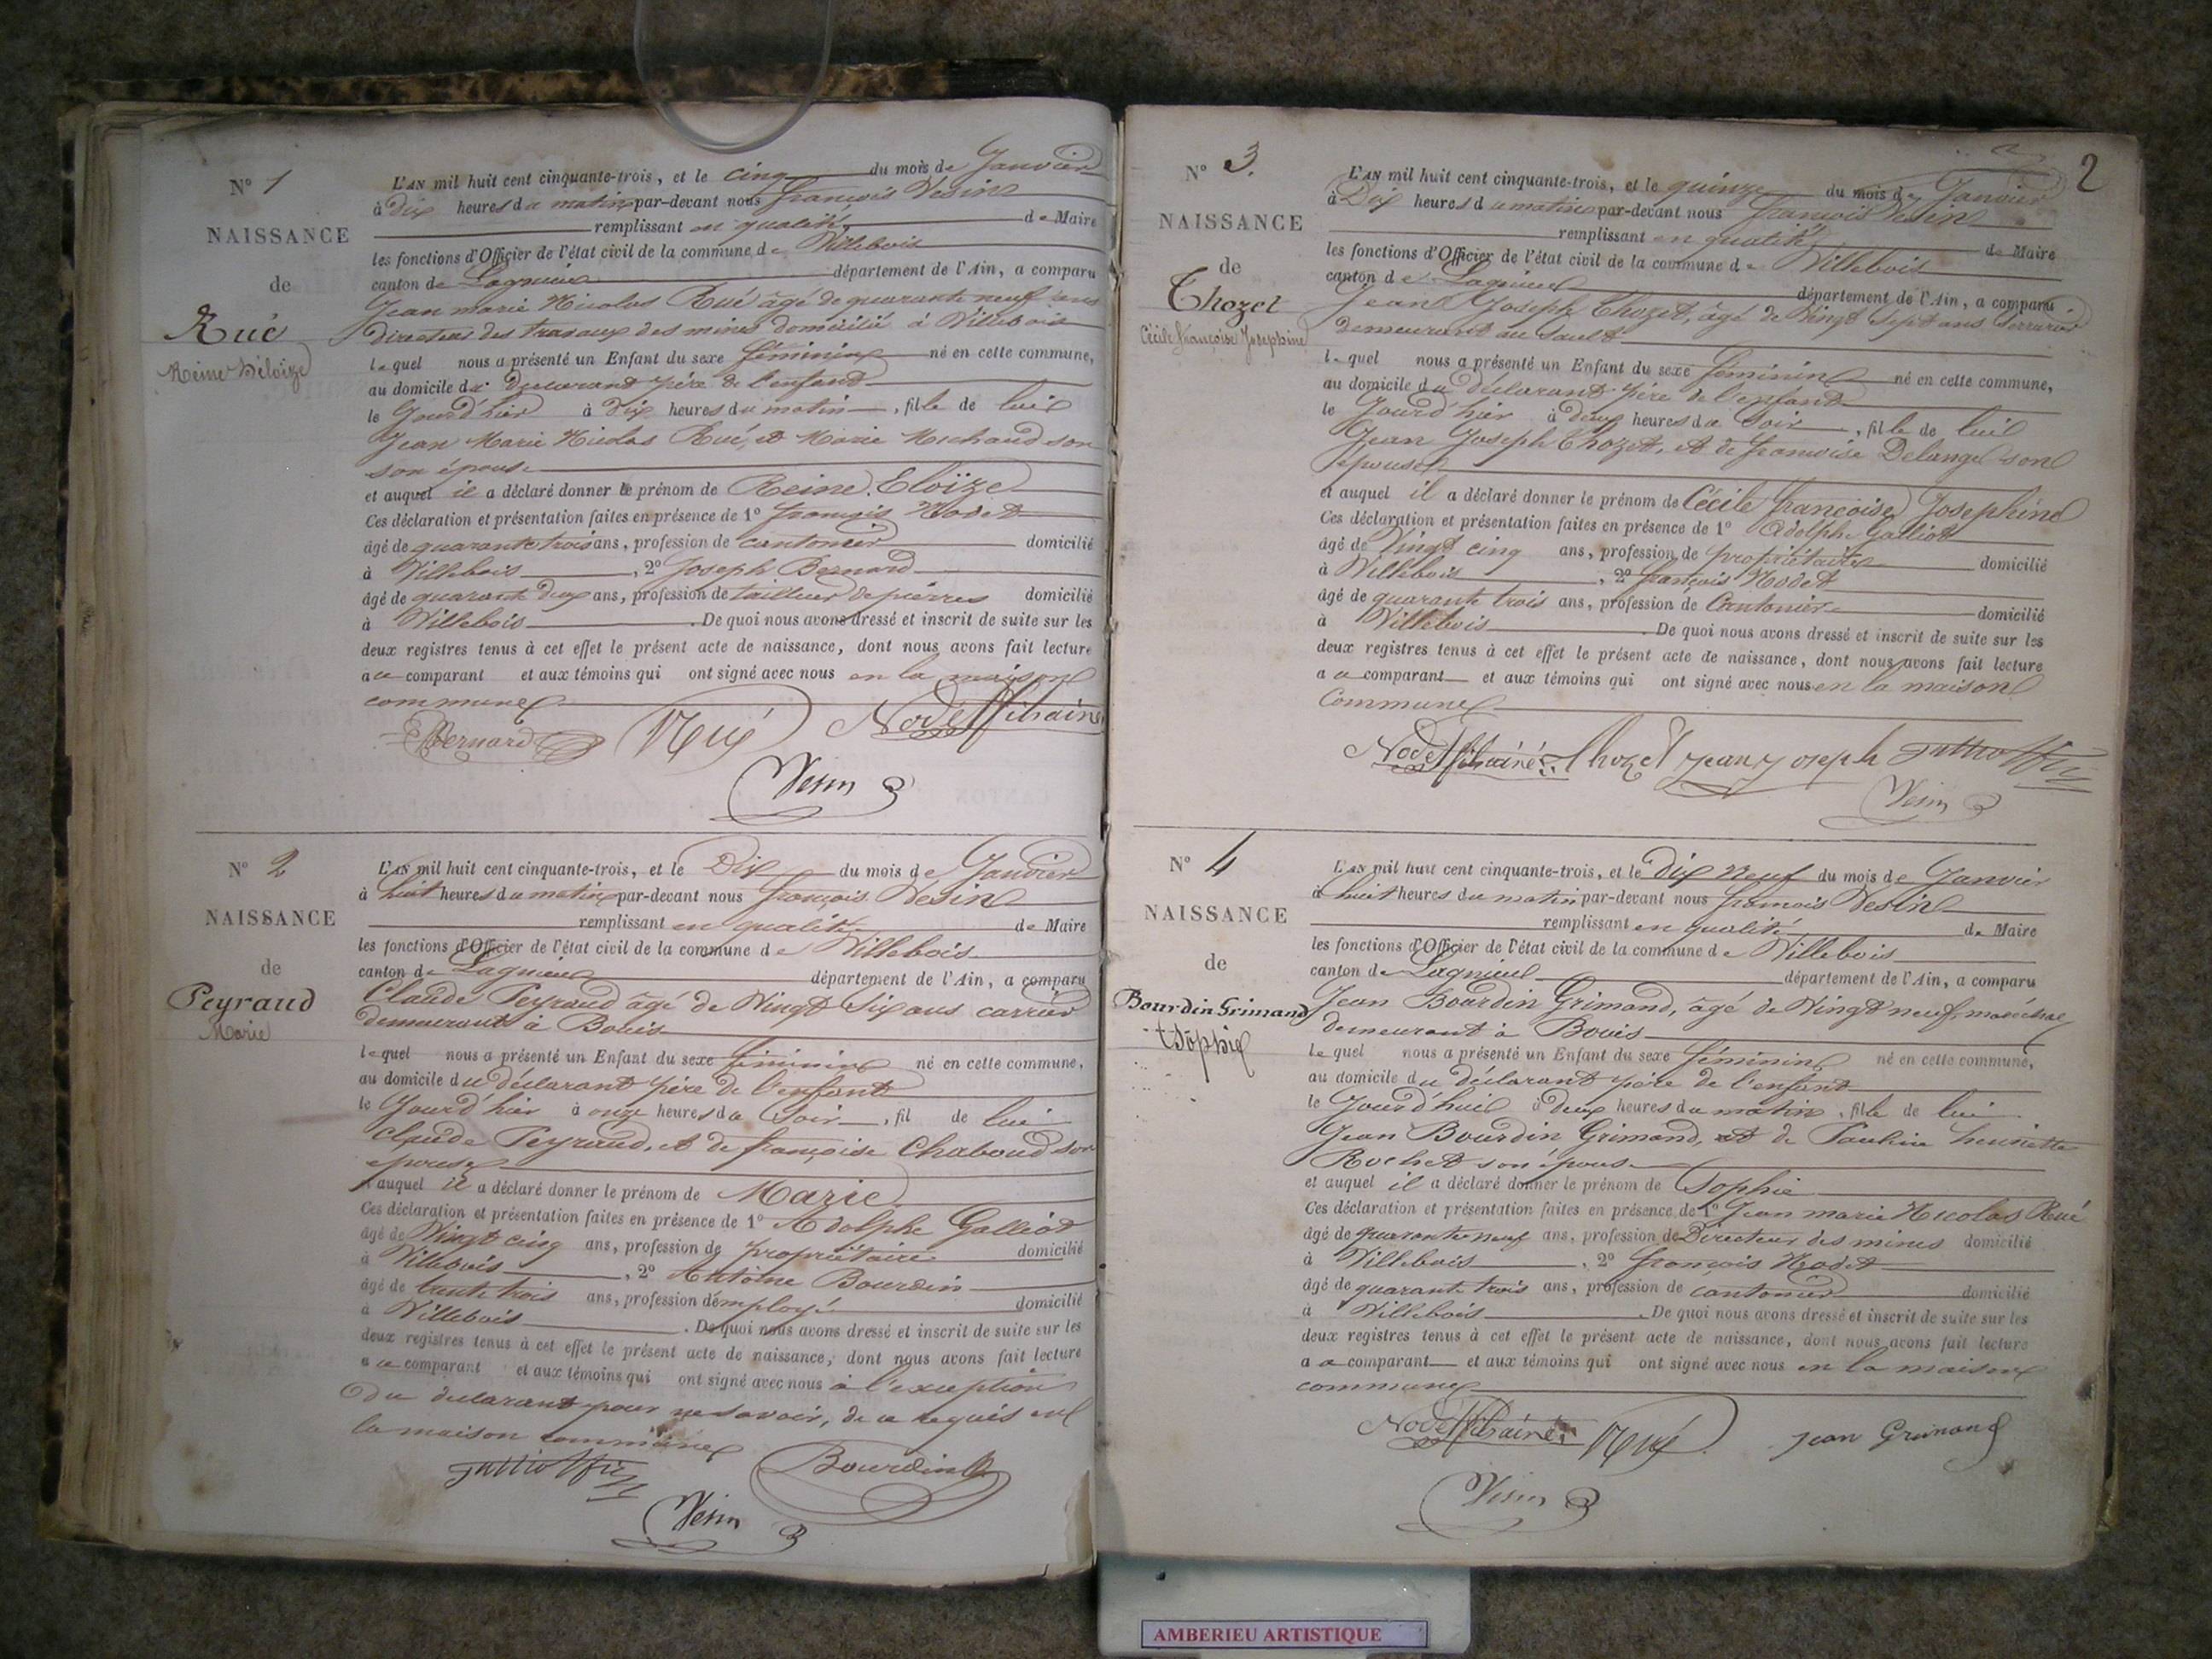 N° 1
NAISSANCE
de
Rué
Reine Héloïze
L'AN mil huit cent cinquante-trois, et le cinq du mois de Janvier
à Dix heures du matin par-devant nous françois Vesin
remplissant en qualité de Maire
les fonctions d'Officier de l'état civil de la commune de Villebois
canton de Lagnieu département de l'Ain, a comparu
Jean marie Nicolas Rué âgé de quarante neuf ans
directeur des travaux des mines domicilié à Villebois
lequel nous a présenté un Enfant du sexe féminin né en cette commune,
au domicile du déclarant père de l'enfant
le Jourd'hier à dix heures du matin, fille de lui
Jean Marie Nicolas Rué, et Marie Michaud son
son épouse
et auquel il a déclaré donner le prénom de Reine Eloïze
Ces déclaration et présentation faites en présence de 1° françois Nodet
âgé de quarante trois ans, profession de cantonier domicilié
à Villebois, 2° Joseph Bernard
âgé de quarante deux ans, profession de tailleur de pierres domicilié
à Villebois. De quoi nous avons dressé et inscrit de suite sur les
deux registres tenus à cet effet le présent acte de naissance, dont nous avons fait lecture
au comparant et aux témoins qui ont signé avec nous en la maison
commune
Bernard Rué Nodet
Vesin
N° 2
NAISSANCE
de
Peyraud
Marie
L'AN mil huit cent cinquante-trois, et le Dix du mois de Janvier
à huit heures du matin par-devant nous françois Vesin
remplissant en qualité de Maire
les fonctions d'Officier de l'état civil de la commune de Villebois
canton de Lagnieu département de l'Ain, a comparu
Claude Peyraud âgé de Vingt Six ans carrier
demeurant à Bouis
lequel nous a présenté un Enfant du sexe féminin né en cette commune,
au domicile du déclarant père de l'enfant
le Jourd'hier à onze heures du Soir, fil de lui
Claude Peyraud, et de françoise Chaboud son
épouse
et auquel il a déclaré donner le prénom de Marie
Ces déclaration et présentation faites en présence de 1° Adolphe Galliot
âgé de Vingt cinq ans, profession de propriétaire domicilié
à Villebois, 2° Antoine Bourdin
âgé de trente trois ans, profession d'employé domicilié
à Villebois. De quoi nous avons dressé et inscrit de suite sur les
deux registres tenus à cet effet le présent acte de naissance, dont nous avons fait lecture
au comparant et aux témoins qui ont signé avec nous à l'exception
du déclarant pour ne savoir, de ce requis en
la maison commune
Bourdin
Vesin
2
N° 3
NAISSANCE
de
Chozet
Cécile françoise Josephine
L'AN mil huit cent cinquante-trois, et le quinze du mois de Janvier
à Dix heures du matin par-devant nous françois Vesin
remplissant en qualité de Maire
les fonctions d'Officier de l'état civil de la commune de Villebois
canton de Lagnieu département de l'Ain, a comparu
Jean Joseph Chozet, âgé de Vingt Sept ans Serrurier
demeurant au Sault
lequel nous a présenté un Enfant du sexe féminin né en cette commune,
au domicile du déclarant père de l'enfant
le Jourd'hier à deux heures du Soir, fille de lui
Jean Joseph Chozet, et de françoise Delange son
épouse
et auquel il a déclaré donner le prénom de Cécile françoise Josephine
Ces déclaration et présentation faites en présence de 1° Adolphe Galliot
âgé de Vingt cinq ans, profession de propriétaire domicilié
à Villebois, 2° françois Nodet
âgé de quarante trois ans, profession de Cantonier domicilié
à Villebois. De quoi nous avons dressé et inscrit de suite sur les
deux registres tenus à cet effet le présent acte de naissance, dont nous avons fait lecture
au comparant et aux témoins qui ont signé avec nous en la maison
Commune
Nodet Chozet jean joseph
Vesin
N° 4
NAISSANCE
de
Bourdin Grimand
Sophie
L'AN mil huit cent cinquante-trois, et le dix Neuf du mois de Janvier
à huit heures du matin par-devant nous françois Vesin
remplissant en qualité de Maire
les fonctions d'Officier de l'état civil de la commune de Villebois
canton de Lagnieu département de l'Ain, a comparu
Jean Bourdin Grimand, âgé de Vingt neuf, maréchal
demeurant à Bouis
lequel nous a présenté un Enfant du sexe féminin né en cette commune,
au domicile du déclarant père de l'enfant
le Jourd'hui à deux heures du matin, fille de lui
Jean Bourdin Grimand, et de Pauline henriette
Rochet son épouse
et auquel il a déclaré donner le prénom de Sophie
Ces déclaration et présentation faites en présence de 1° Jean marie Nicolas Rué
âgé de quarante neuf ans, profession de Directeur des mines domicilié
à Villebois, 2° françois Nodet
âgé de quarante trois ans, profession de cantonier domicilié
à Villebois. De quoi nous avons dressé et inscrit de suite sur les
deux registres tenus à cet effet le présent acte de naissance, dont nous avons fait lecture
au comparant et aux témoins qui ont signé avec nous en la maison
commune
Nodet Rué jean Grimand
Vesin
AMBERIEU ARTISTIQUE